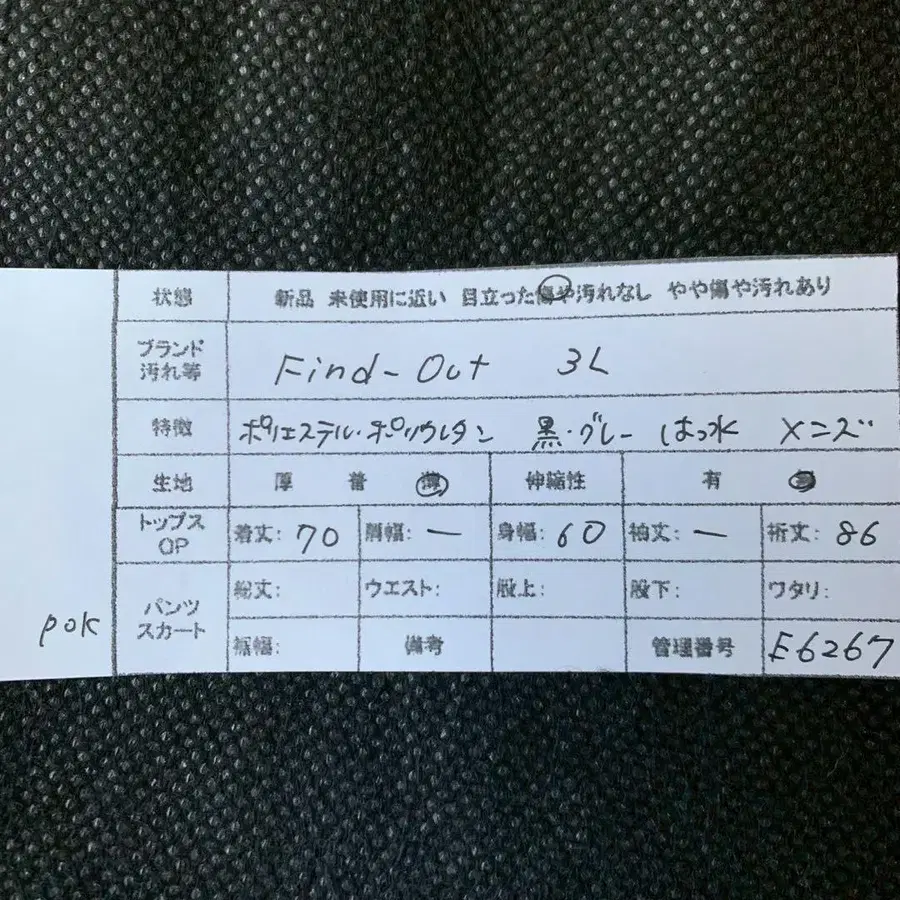 状態 新品 未使用に近い 目立った傷や汚れなし やや傷や汚れあり
ブランド
汚れ等 Find-Out 3L
特徴 ポリエステル・ポリウレタン 黒・グレー はっ水 メンズ
生地 厚 普 薄 伸縮性 有 無
トップス
OP 着丈: 70 肩幅: ー 身幅: 60 袖丈: ー 裄丈: 86
パンツ
スカート 総丈: ウエスト: 股上: 股下: ワタリ:
裾幅: 備考 管理番号 E6267
pok